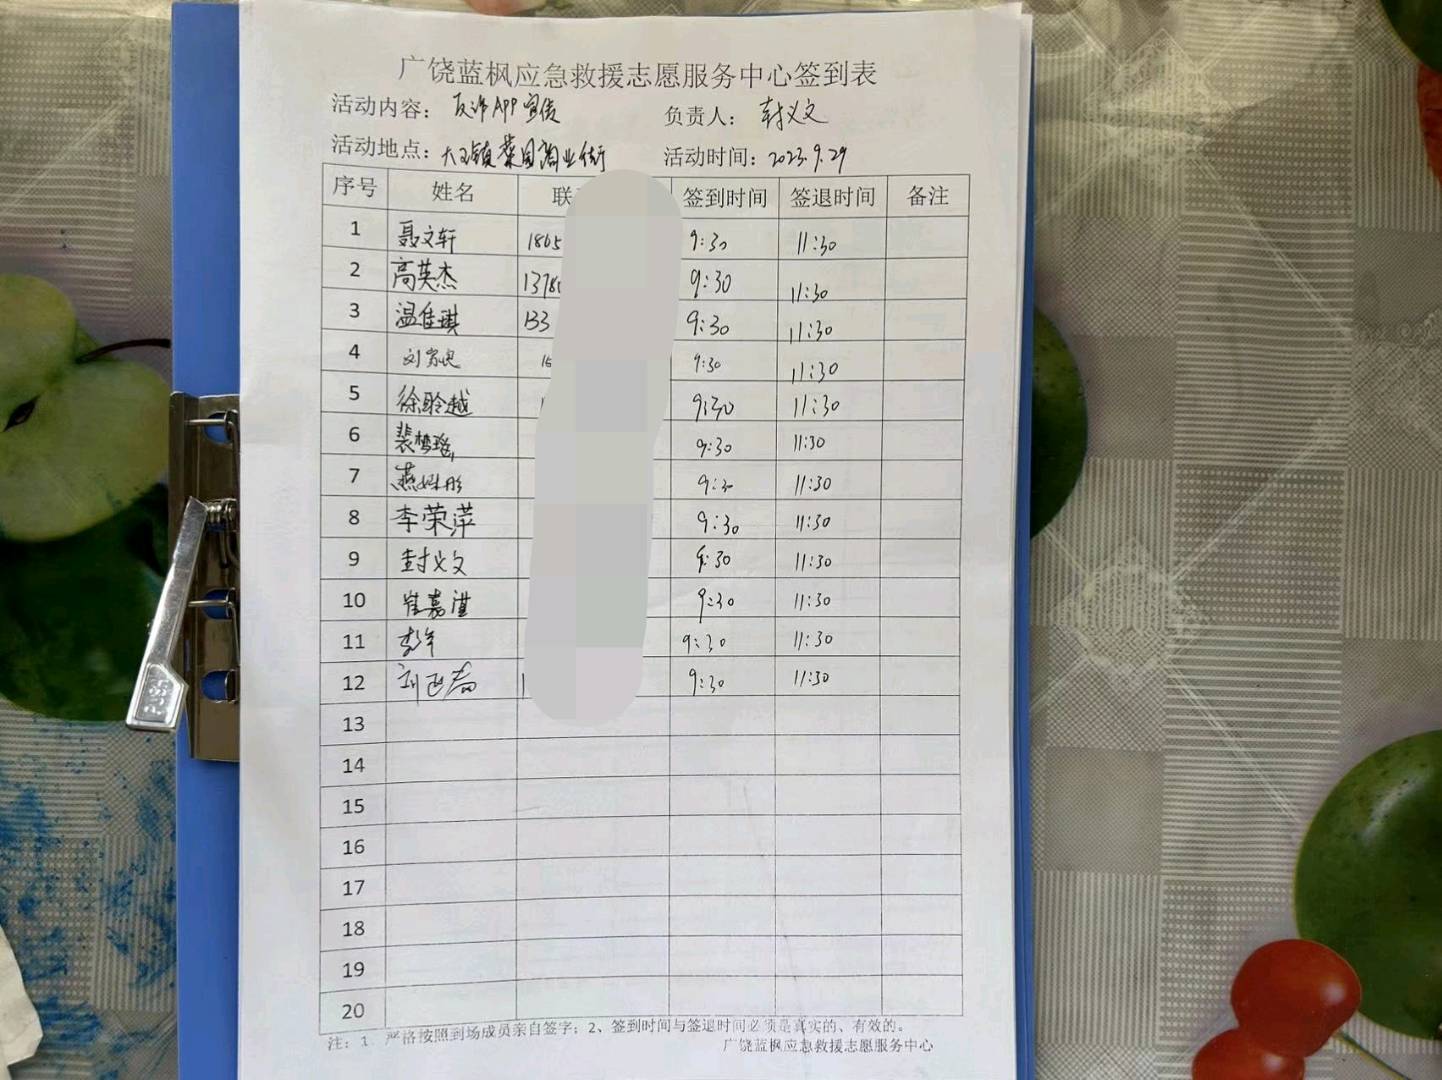 广饶蓝枫应急救援志愿服务中心签到表
活动内容：反诈APP宣传 负责人：封义文
活动地点：大王镇菜园商业街 活动时间：2023.9.29
序号 姓名 联 签到时间 签退时间 备注
1 聂文轩 1865 9:30 11:30
2 高英杰 1378 9:30 11:30
3 温佳琪 133 9:30 11:30
4 刘 15 9:30 11:30
5 徐聆越 1 9:30 11:30
6 裴梦瑶 9:30 11:30
7 燕姝彤 9:30 11:30
8 李荣萍 9:30 11:30
9 封义文 9:30 11:30
10 崔嘉 9:30 11:30
11 李 9:30 11:30
12 刘 1 9:30 11:30
13
14
15
16
17
18
19
20
注：1 严格按照到场成员亲自签字；2、签到时间与签退时间必须是真实的、有效的。
广饶蓝枫应急救援志愿服务中心
PUSH